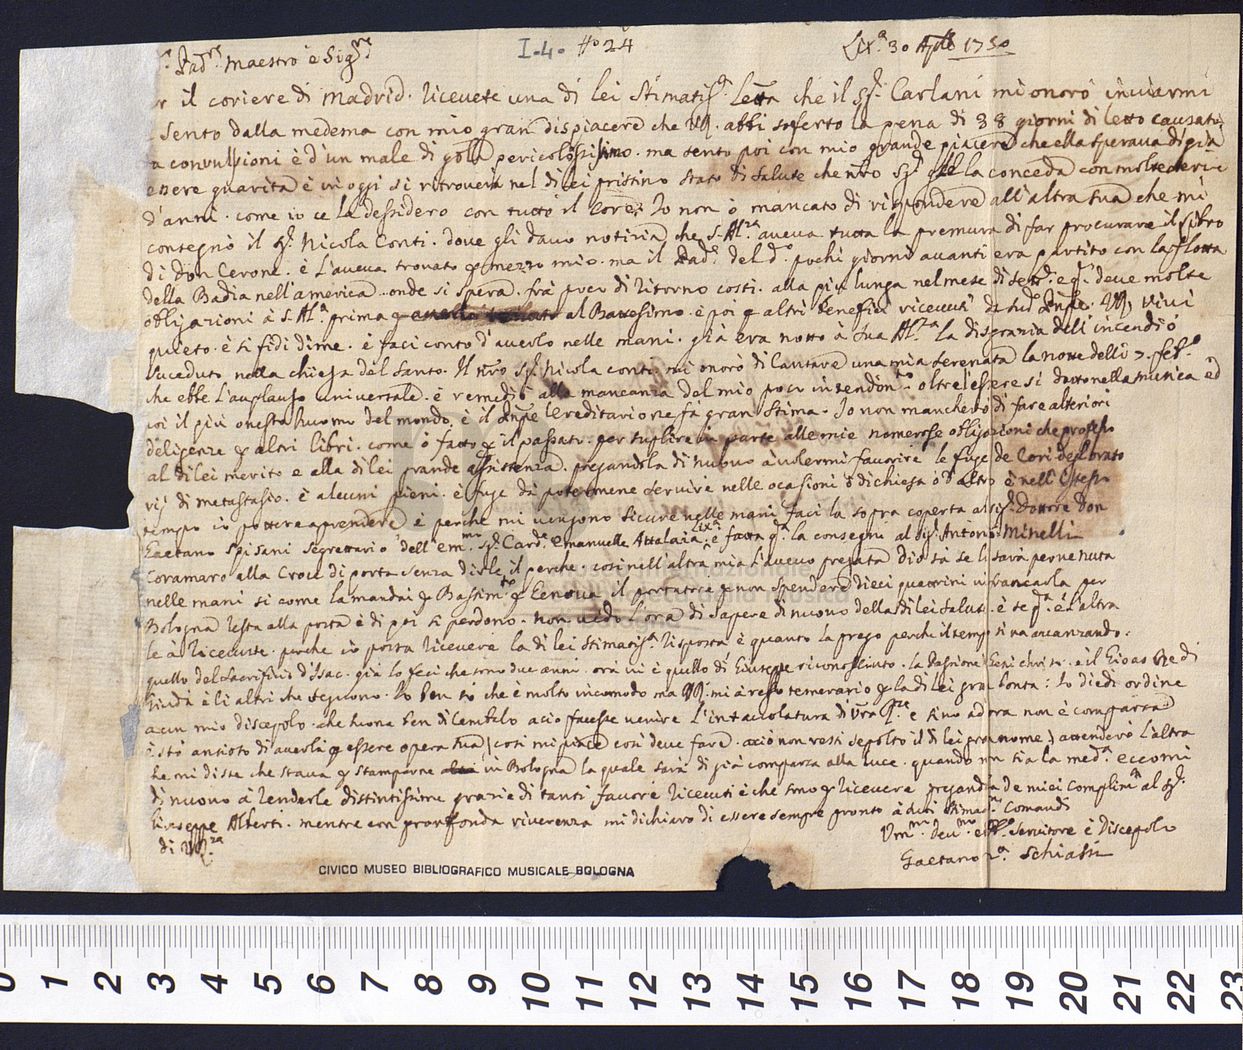 Pad.re Maestro è Sig.re
I-4- H° 24
Lix.a 30 Aple 1750
r il coriere di Madrid. ricevete una di lei Stimatis.a Lettra che il Sg.r Carlani mi onorò inviarmi
Sento dalla medema con mio gran dispiacere che abbi soferto la pena di 38 giorni di letto causati
a convulsioni è d'un male di gola pericolosissimo. ma sento poi con mio grande piacere che ella sperava di già
essere guarita è in oggi si ritroverà nel di lei pristino stato di salute che nro Sg.r la conceda con molte
d'anni. come io ce la dessidero con tutto il core. Io non ò mancato di rispondere all'altra sua che mi
consegnò il Sg.r Nicola Conti. dove gli davo notizia che S. Al.za aveva tutta la premura di far procurare il libro
di Don Cerone. è l'aveva trovato mezzo mio. ma il Pad.e del d.o pochi giorni avanti era partito con la flotta
della Badia nell'america. onde si spera. frà poco di ritorno costi. alla più lunga nel mese di deve molte
obligazioni à S. Al.a prima al Battesimo. è poi altri benefizi ricevuti da Vivi
quieto. è si fidi di me. è faci conto d'averlo nelle mani. già era notto à Sua Al.za la disgrazia dell'incendio
suceduto nella chiesa del Santo. Il Sg.r Nicola conti mi onorò di cantare una mia serenata la notte delli 7. feb.o
che ebbe l'auplauso universale. è remediò alla mancanza del mio poco oltre essere si dotto nella musica ed
poi il più onesta huomo del mondo. è il ereditario ne fà gran stima. Io non mancherò di fare alteriori
deligenze altri libri. come ò fatto il passato. per suplire in parte alle mie numerose obligazioni che professo
al di lei merito e alla di lei grande assistenza. pregandola di nuovo à volermi favorire le fuge de Cori
di metastasio. è alcuni pieni. è fuge da potermene servire nelle ocasioni ò di chiesa ò d'altro è nell'istesso
tempo io potere aprendere è perche mi vengono sicure nelle mani faci la sopra coperta al sig.r Dottore Don
Gaetano Spisani segrettario dell'em.mo Sg.r Card.e Emanuelle Attalaia Lix.a è fatta q.a la consegni al Sg.r Antonio Minelli
Coramaro alla Croce di porta senza dirle il perche. cosi nell'altra mia l'avevo pregata dio sà se li sarà pervenuta
nelle mani si come la mandai Bastim.to Genova il portatore non spendere dieci quattrini in francarla per
Bologna resta alla posta è di poi si perdono. non vedo l'ora di sapere di nuovo della di lei salute è se q.a è l'altra
le à ricevute. perche io possa ricevere la di lei stimatis.a risposta è quanto la prego perche il tempo si va avanzando.
quello del Sacrifizio d'Isac. già lo feci che sono due anni. ora vi è quello di Giuseppe riconosciuto. la Passione Gesù christo. è il Gioas Re di
Giuda è li altri che seguono. Io ben sò che è molto incomodo ma mi à reso temerario la di lei gra bontà: Io diedi ordine
a un mio discepolo. che suona ben di Cembalo acio facesse venire l'intavolatura di V.ra e sino adora non è comparsa
è stò ansioso di averla essere opera sua (cosi mi piace cosi deve fare. acciò non resti sepolto il di lei gra nome) attenderò l'altra
he mi disse che stava stamparne in Bologna la quale sarà di già comparsa alla luce. quando non sia la med.a eccomi
di nuovo à renderle distintissime grazie di tanti favori ricevuti è che sono ricevere pregandola de miei complim.ti al Sg.r
Giuseppe Alberti. mentre con profonda riverenza mi dichiaro di essere sempre pronto à di lei stimat.mi Comandi
di
Um.mo Dev.mo Servitore è Discepolo
Gaetano M.a Schiassi
CIVICO MUSEO BIBLIOGRAFICO MUSICALE BOLOGNA
0 1 2 3 4 5 6 7 8 9 10 11 12 13 14 15 16 17 18 19 20 21 22 23